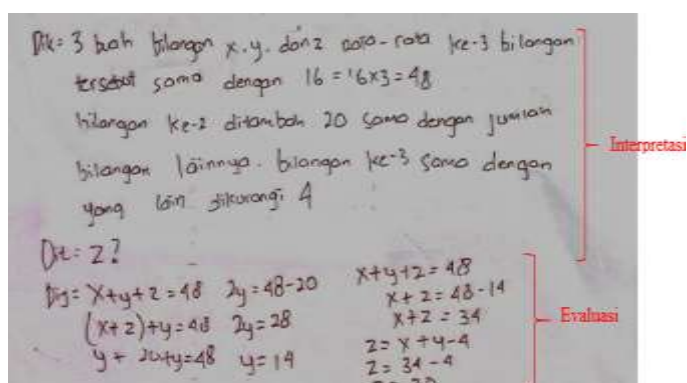 Dik = 3 buah bilangan x.y. dan z rata-rata ke-3 bilangan
tersebut sama dengan 16 = 16x3 = 48
bilangan ke-2 ditambah 20 sama dengan jumlah
bilangan lainnya. bilangan ke-3 sama dengan
yang lain dikurangi 4
Interpretasi
Dit = z?
x+y+z=48 2y=48-20
(x+z)+y=48 2y=28
y+20+y=48 y=14
x+y+z=48
x+z=48-14
x+z=34
z=x+y-4
z=34-4
Evaluasi